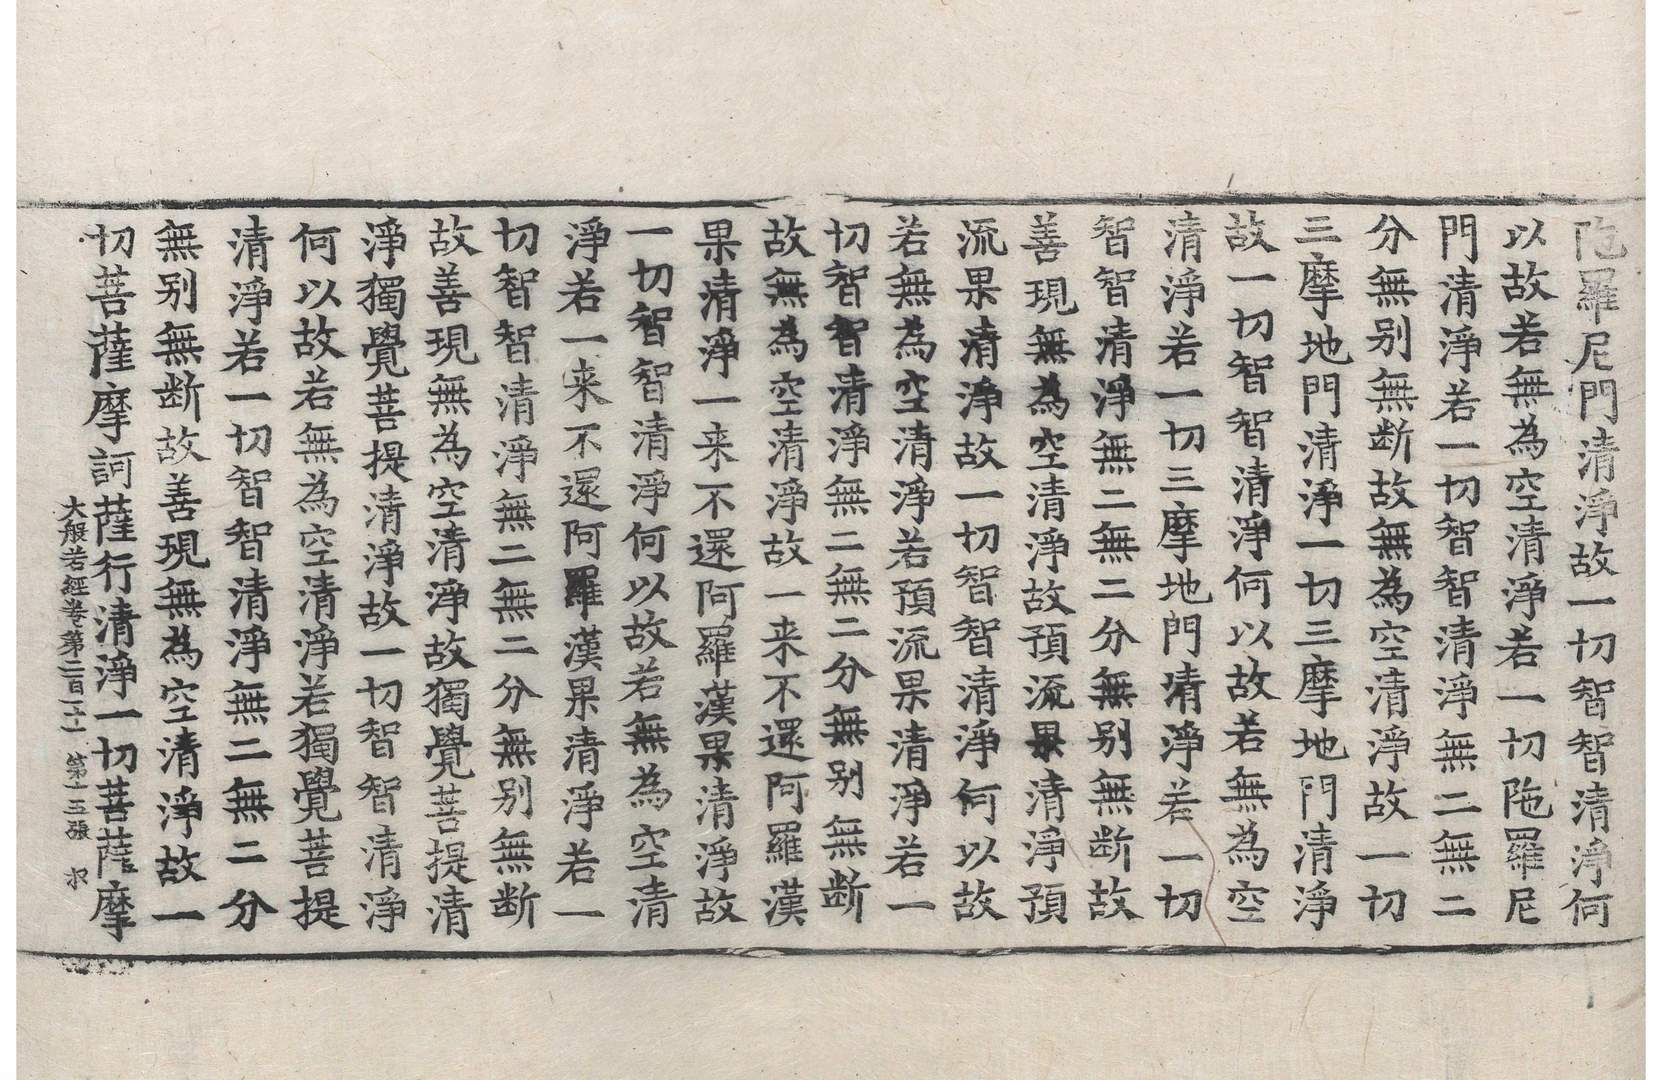 陁羅尼門清淨故一切智智清淨何
以故若無為空清淨若一切陁羅尼
門清淨若一切智智清淨無二無二
分無别無断故無為空清淨故一切
三摩地門清淨一切三摩地門清淨
故一切智智清淨何以故若無為空
清淨若一切三摩地門清淨若一切
智智清淨無二無二分無别無断故
善現無為空清淨故預流果清淨預
流果清淨故一切智智清淨何以故
若無為空清淨若預流果清淨若一
切智智清淨無二無二分無别無断
故無為空清淨故一来不還阿羅漢
果清淨一来不還阿羅漢果清淨故
一切智智清淨何以故若無為空清
淨若一来不還阿羅漢果清淨若一
切智智清淨無二無二分無别無断
故善現無為空清淨故獨覺菩提清
淨獨覺菩提清淨故一切智智清淨
何以故若無為空清淨若獨覺菩提
清淨若一切智智清淨無二無二分
無别無断故善現無為空清淨故一
切菩薩摩訶薩行清淨一切菩薩摩
大般若經卷第二百 第十五張 収